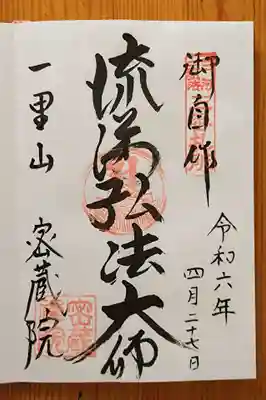 御自作
令和六年
四月二十七日
流涕弘法大師
一里山 密蔵院